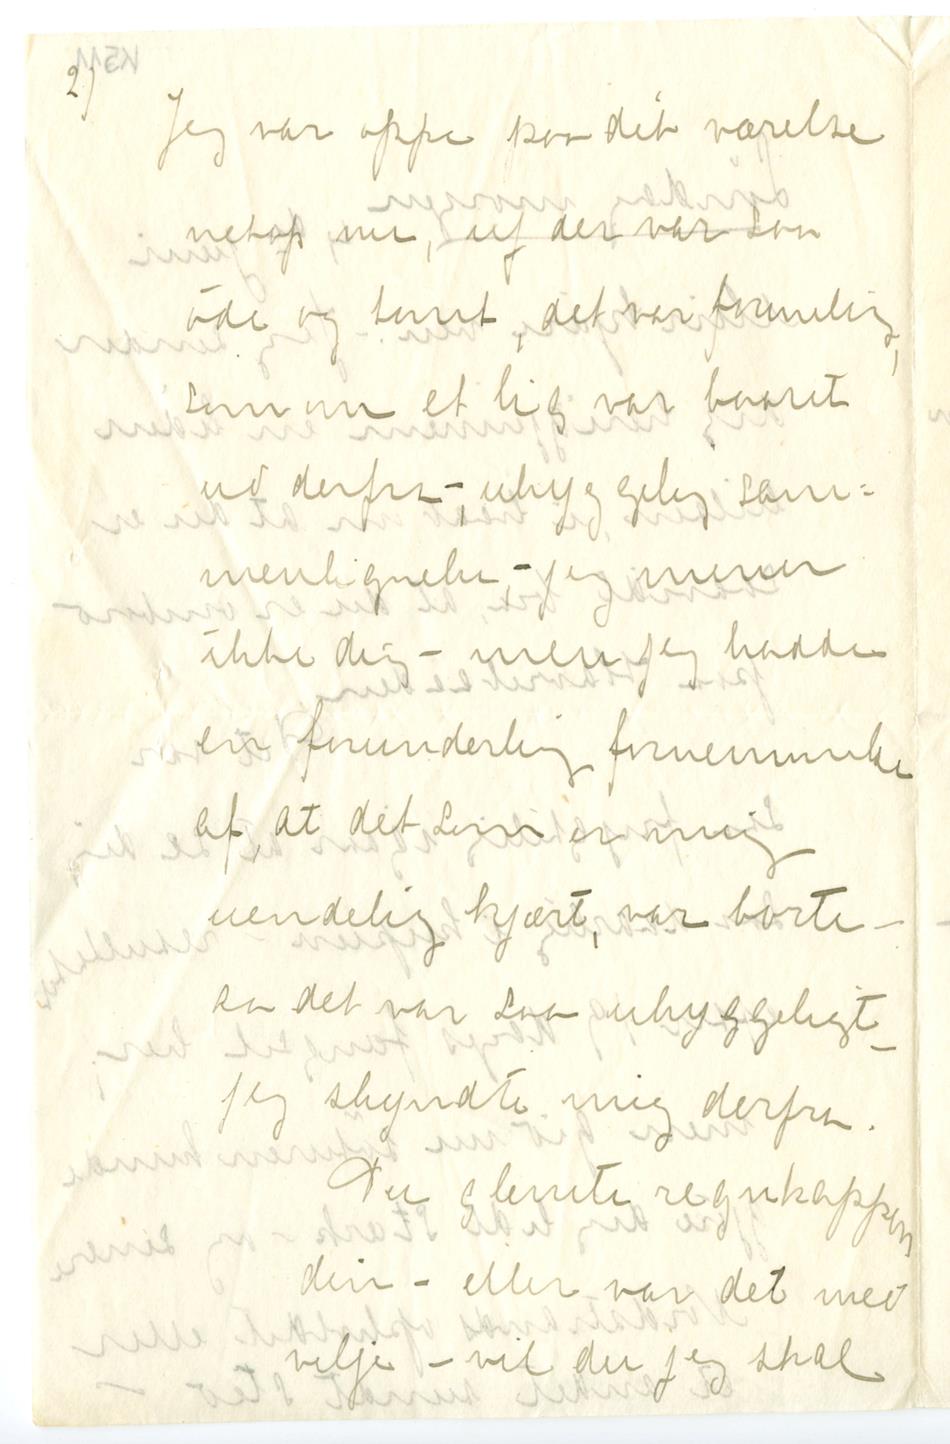 2)
Jeg var oppe paa dit værelse
netop nu, uf der var saa
öde og tomt, det var formelig,
som om et lig var baaret
ud derfra -, uhyggelig sam=
menligнelse, - jeg mener
ikke dig - men jeg hadde
en forunderlig fornemmelse
af, at det som er mig
uendelig kjært, var borte -
aa det var saa uhyggeligt -
jeg skyndte mig derfra.
Du glemte regnkappen
din - eller var det med
vilje - vil du jeg skal